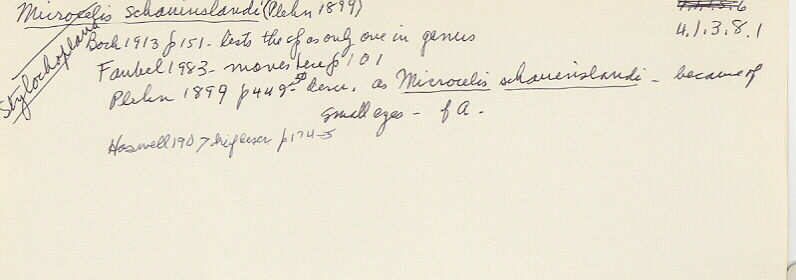 Microcelis schauinslandi (Plehn 1899)
4.1.3.8.1
Stylochoplana
Bock 1913 p151 - lists the sp as only one in genus
Faubel 1983 - moves here p 101
Plehn 1899 p449 - descr. as Microcelis schauinslandi - because of
small eggs - f A.
Haswell 1907 brief descr p174-5